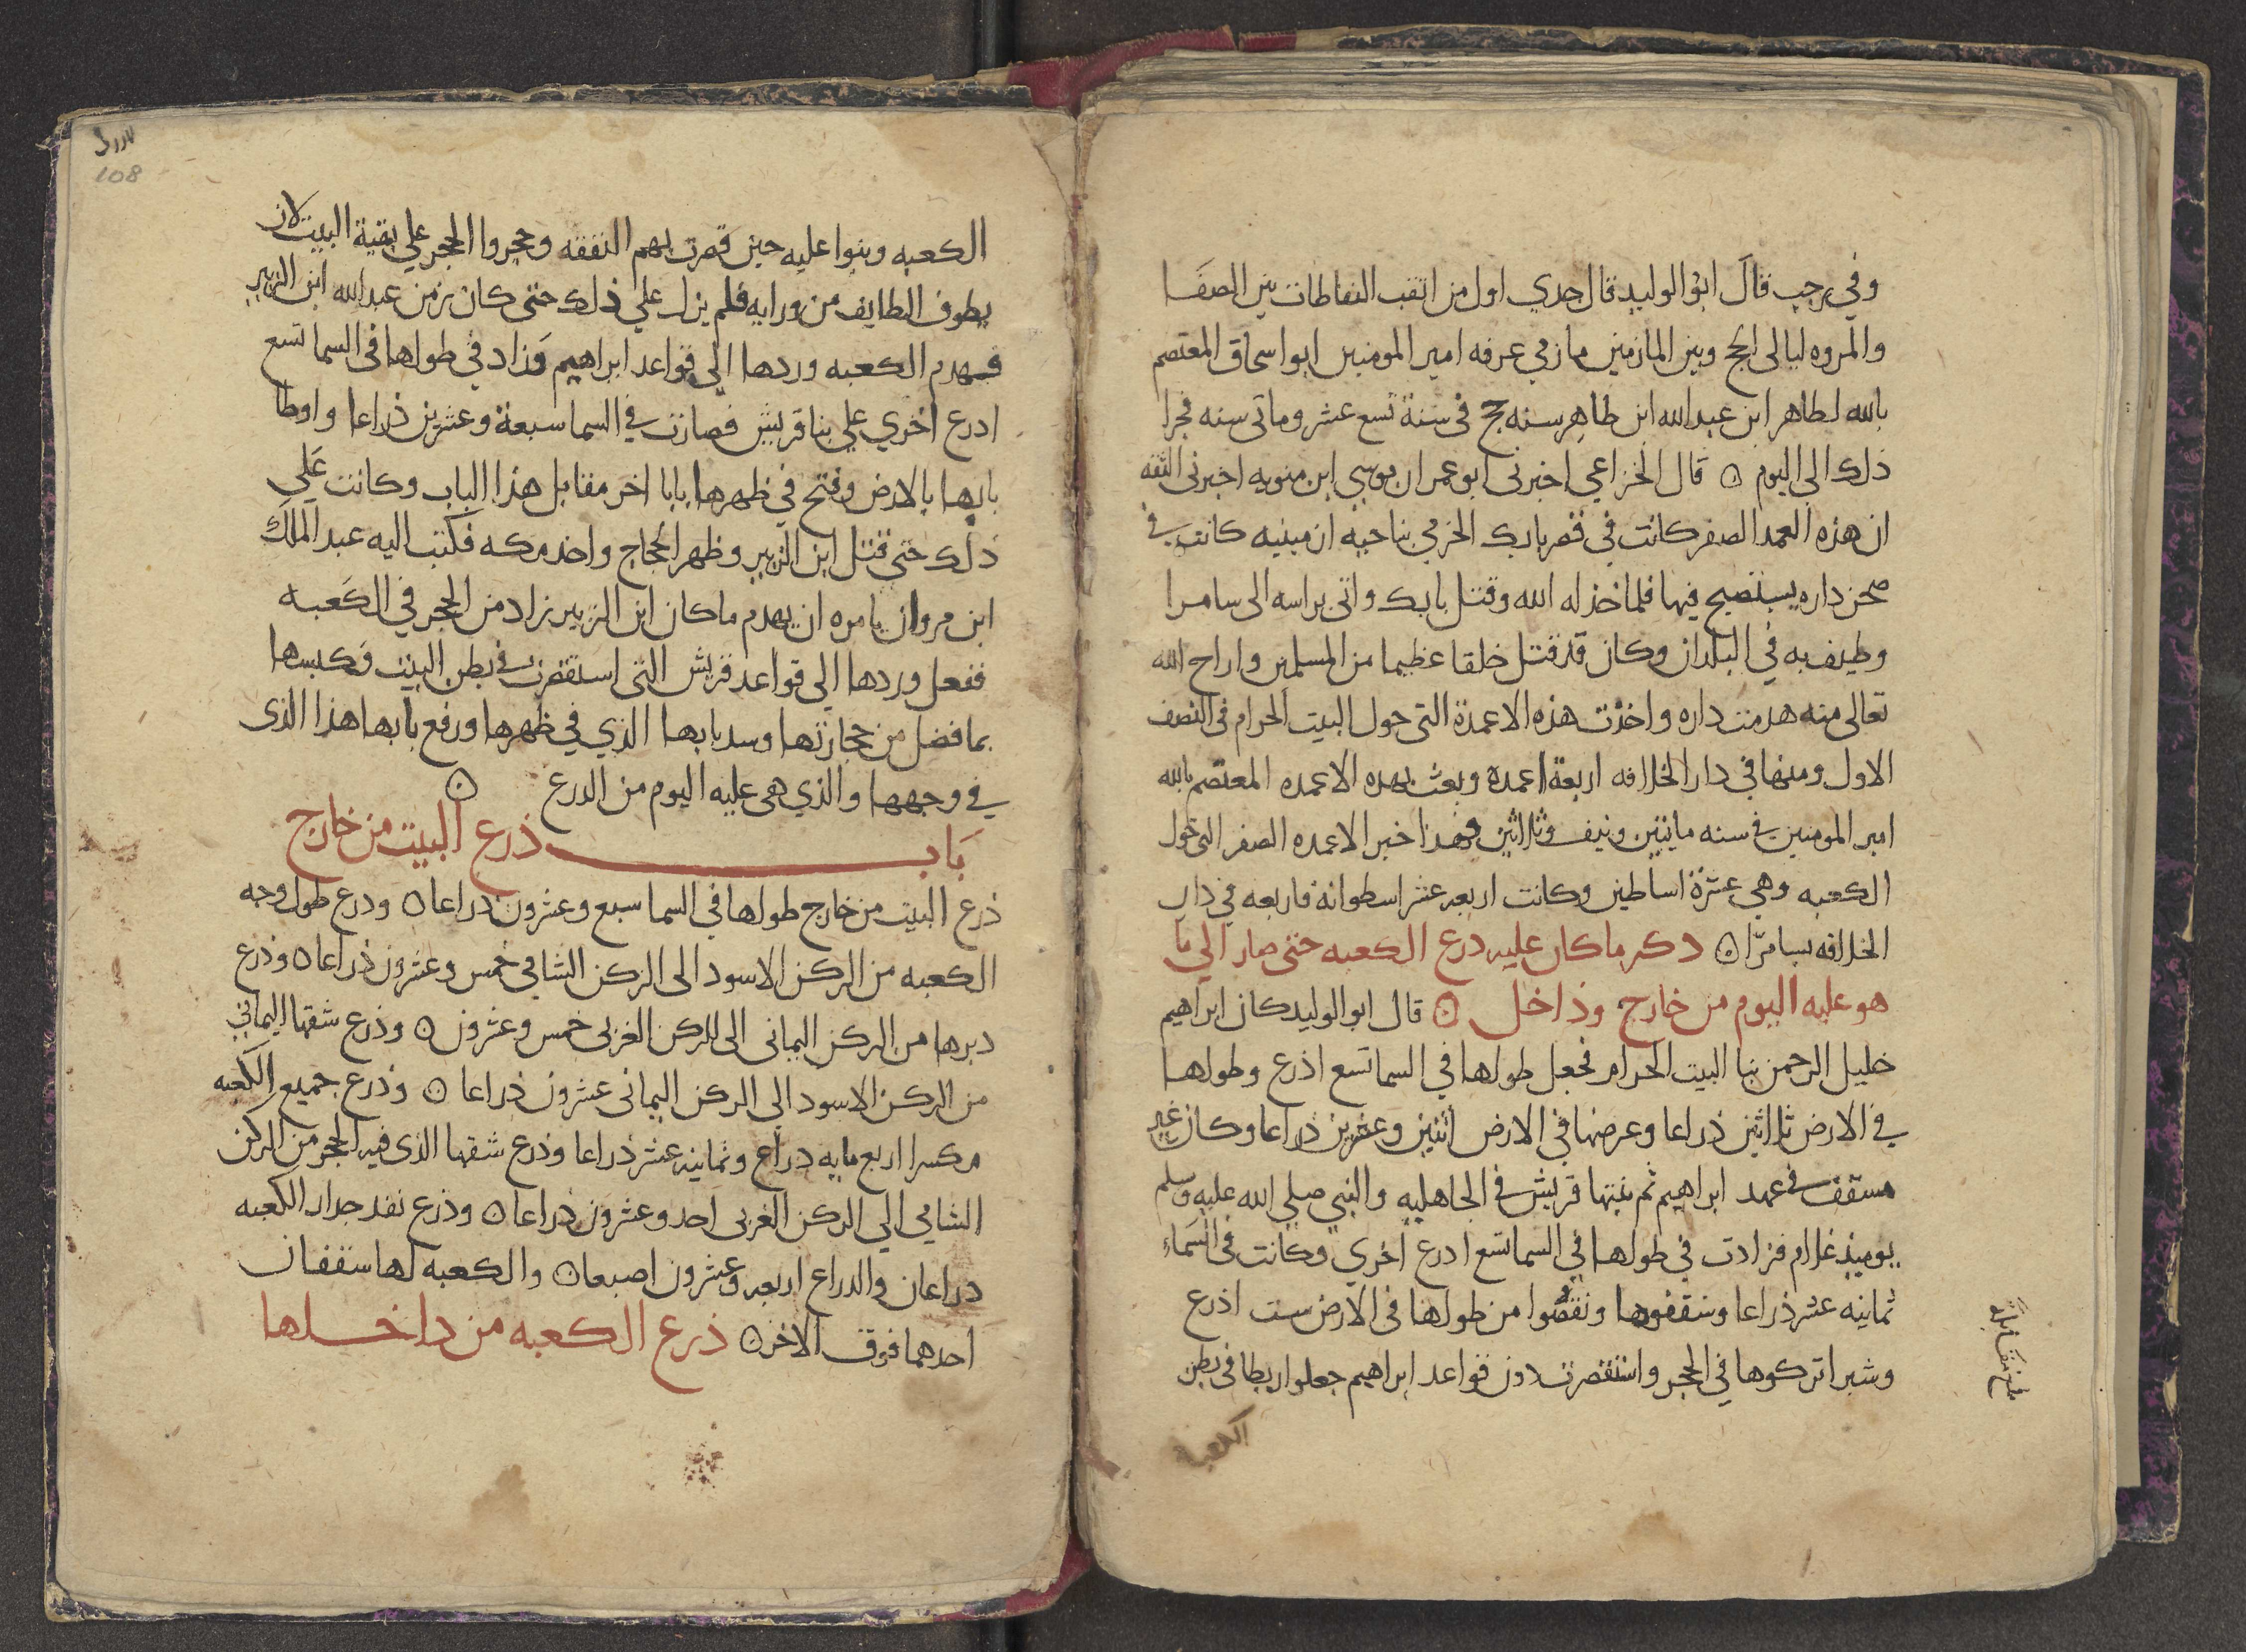 وفي رجب قال ابو الوليد قال جدي اول من اثقب النفاطات بين الصفا
والمروه ليالى الحج وبين المازمين مازمي عرفه امير المومنين ابو اسحاق المعتصم
بالله لطاهر ابن عبد الله ابن طاهر سنه حج في سنة تسع عشر وماتى سنه فجرا
ذلك الى اليوم ۞ قال الخزاعي اخبرنى ابو عمران موسى ابن منويه اخبرنى الثقه
ان هذه العمد الصفر كانت في قصر بابك الخرمي بناحيه ارمينيه كانت في
صحن داره يستصبح فيها فلما خذله الله وقتل بابك واتى براسه الى سامرا
وطيف به في البلدان وكان قد قتل خلقا عظيما من المسلمين واراح الله
تعالى منه هدمت داره واخذت هذه الاعمدة التى حول البيت الحرام في الصف
الاول ومنها في دار الخلافه اربعة اعمدة وبعث بهده الاعمده المعتصم بالله
امير المومنين في سنه مايتين ونيف وثلاثين فهذا خبر الاعمده الصفر التى حول
الكعبه وهي عشرة اساطين وكانت اربعه عشر اسطوانة فاربعه في دار
الخلافه بسامرّا ۞ دكر ما كان عليه درع الكعبه حتى صار الي ما
هو عليه اليوم من خارج وداخل ۞ قال ابو الوليد كان ابراهيم
خليل الرحمن بنا البيت الحرام فجعل طولها في السما تسع اذرع وطولها
في الارض ثلاثين ذراعا وعرضها في الارض اثنين وعشرين ذراعا وكان غير
مسقف في عهد ابراهيم ثم بنتها قريش في الجاهليه والنبي صلى الله عليه وسلم
يوميذ غلام فزادت في طولها في السما تسع ادرع اخري وكانت في السماء
ثمانيه عشر ذراعا وسقفوها ونقصوا من طولها في الارض ست اذرع
وشبرا تركوها في الحجر واستقصرت دون قواعد ابراهيم جعلوا ربطا في بطن
الكعبة
بلغ مقابلة
108
الكعبه وبنوا عليه حين قصرت بهم النفقه وحجروا الحجر علي بقية البيت لان
يطوف الطايف من ورايه فلم يزل علي ذلك حتى كان زمن عبد الله ابن الزبير
فهدم الكعبه وردها الي قواعد ابراهيم وزاد في طولها في السما تسع
ادرع اخري علي بنا قريش فصارت في السما سبعة وعشرين ذراعا واوطا
بابها بالارض وفتح في ظهرها بابا اخر مقابل هذا الباب وكانت علي
ذلك حتى قتل ابن الزبير وظهر الحجاج واخد مكه فكتب اليه عبد الملك
ابن مروان يامره ان يهدم ما كان ابن الزبير زاد من الحجر في الكعبه
ففعل وردها الي قواعد قريش التى استقصرت في بطن البيت وكبسها
بما فضل من حجارتها وسد بابها الذي في ظهرها ورفع بابها هذا الذى
في وجهها والذي هى عليه اليوم من الدرع ۞
باب ذرع البيت من خارج
ذرع البيت من خارج طولها في السما سبع وعشرون دراعا ۞ ودرع طول وجه
الكعبه من الركن الاسود الى الركن الشامي خمس وعشرون ذراعا ۞ وذرع
دبرها من الركن اليمانى الى الركن الغربى خمس وعشرون ۞ وذرع شقها اليمانى
من الركن الاسود الي الركن اليمانى عشرون ذراعا ۞ وذرع جميع الكعبه
مكسرا اربع مايه دراع وثمانيه عشر ذراعا وذرع شقها الذى فيه الحجر من الركن
الشامي الي الركن الغربى احد وعشرون ذراعا ۞ وذرع نفد جدار الكعبه
دراعان والدراع اربعه وعشرون اصبعا ۞ والكعبه لها سقفان
احدهما فوق الاخر ۞ ذرع الكعبه من داخلها